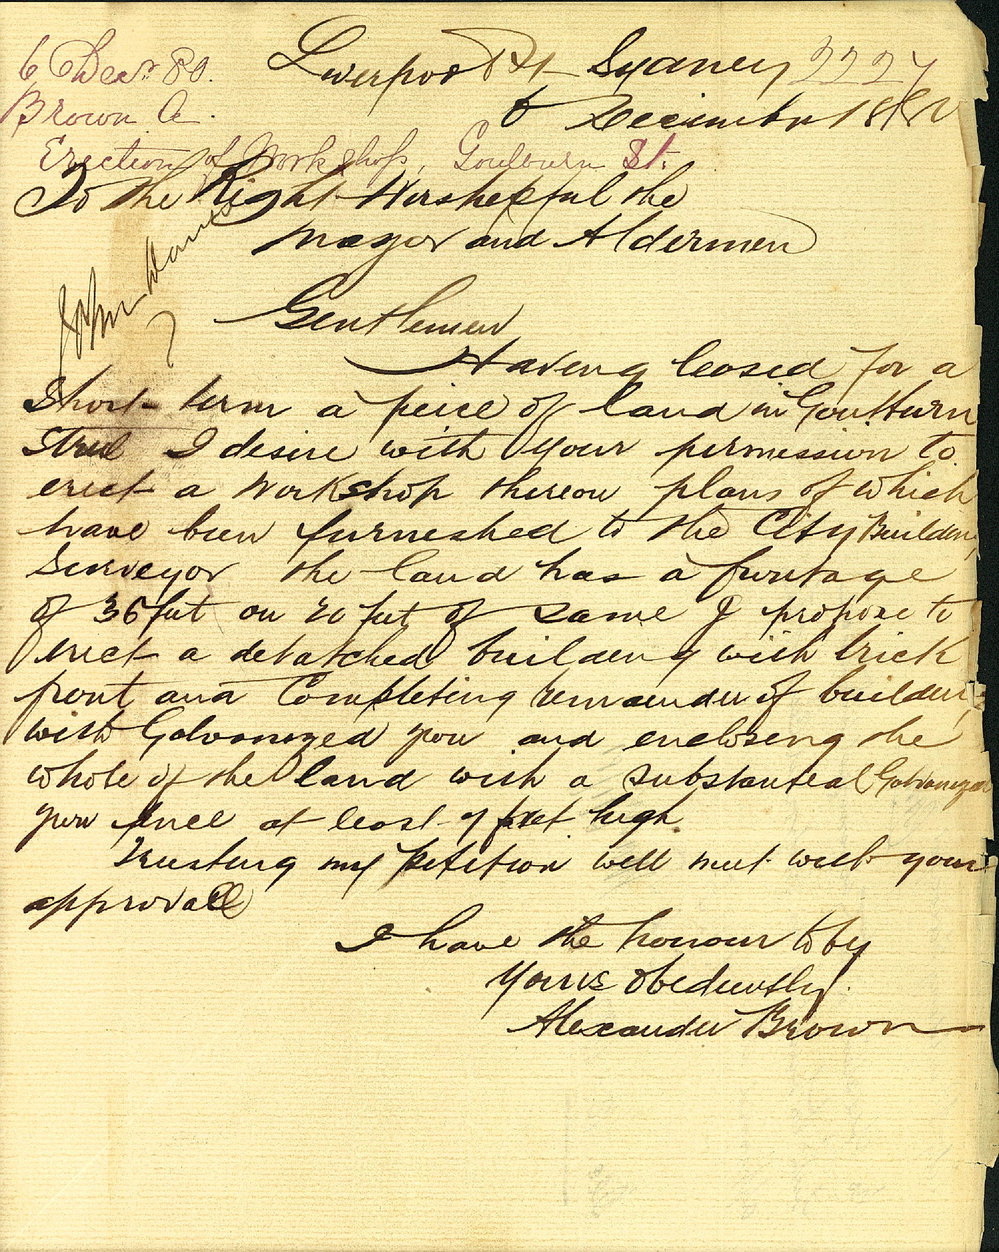 6 Decr 80.
Brown A.
Erection of Workshop, Goulburn St.
2227
Liverpool St Sydney
6 December 1880
To the Right Worshepful the
Mayor and Aldermen
John
Gentlemen
Having leased for a
Short term a peice of land in Goulburn
Street I desire with your permission to
erect a Workshop thereon plans of which
have been furneshed to the City Building
Surveyor the land has a frontage
of 36 feet on 20 feet of same I propose to
erect a detatched building with brick
front and Completing remainder of building
with Galvanized yron and enclosing the
whole of the land with a substanteal Galvanized
yron fence at least 7 feet high
Trusting my Petition will meet with your
approvall
I have the honour to by
Yours Obediently.
Alexander Brown